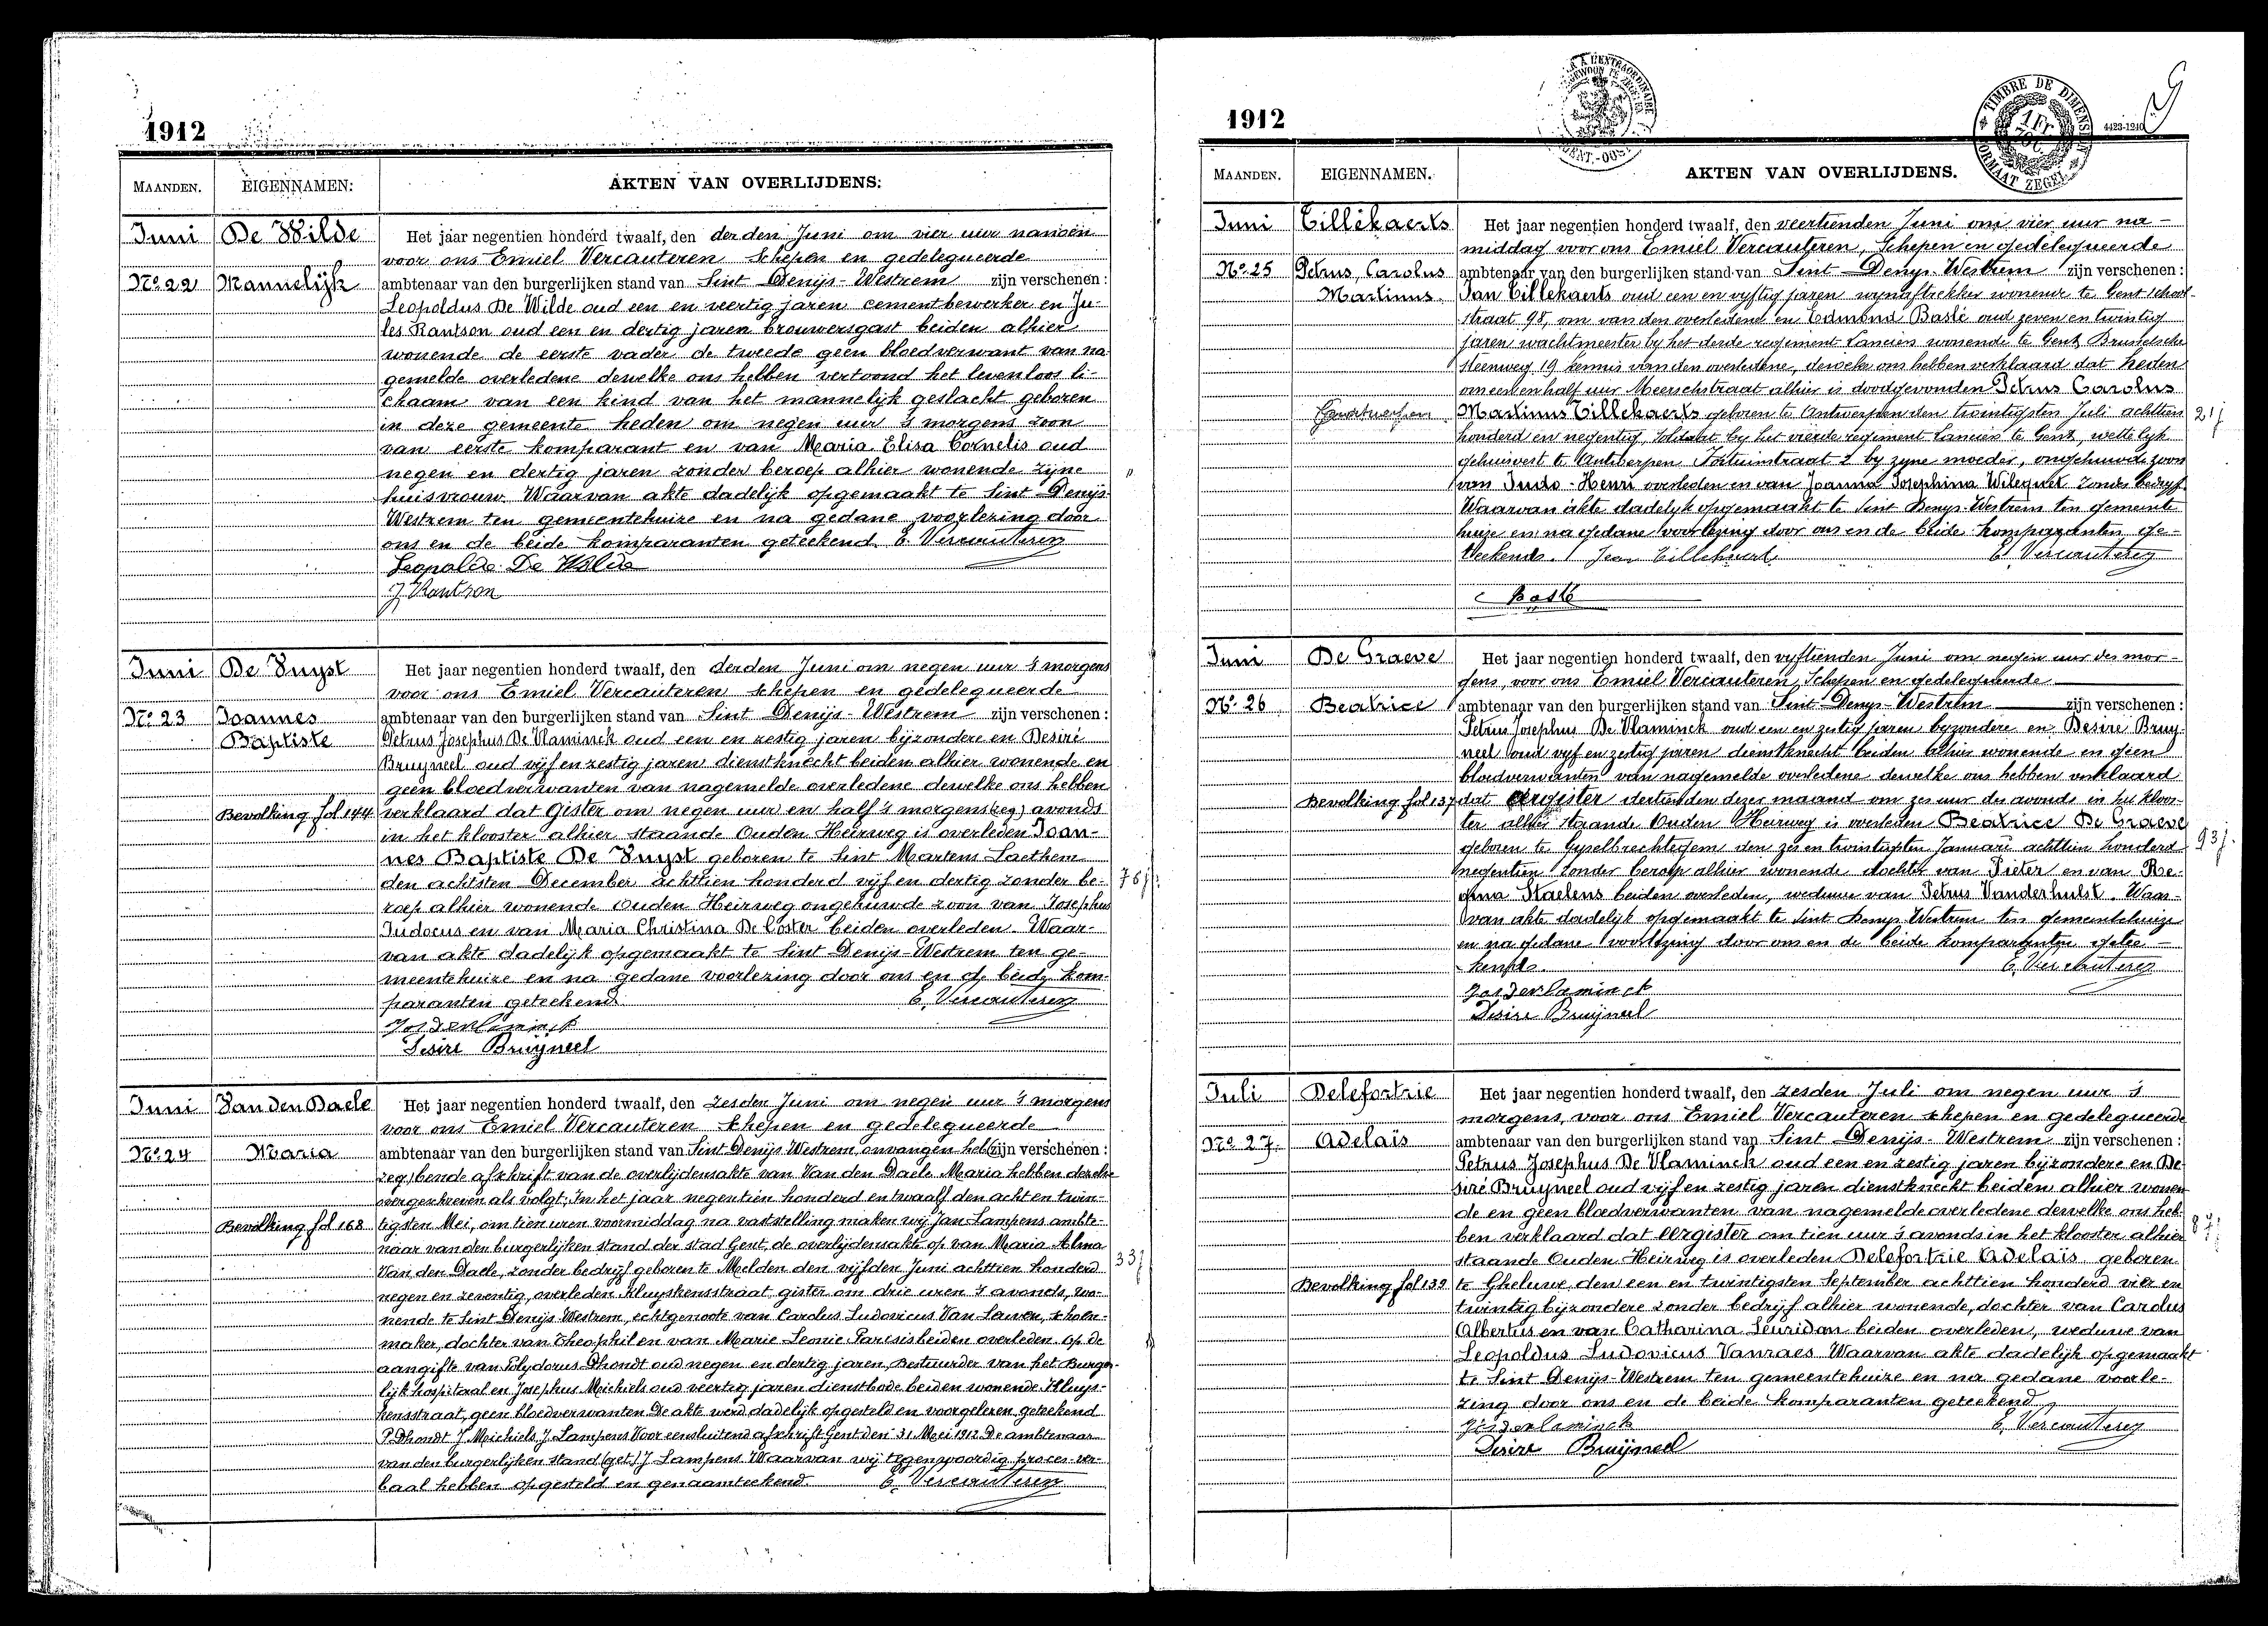 1912
MAANDEN.
EIGENNAMEN:
AKTEN VAN OVERLIJDENS:
Juni
De Wilde
No 22
Mannelijk
Het jaar negentien honderd twaalf, den derden Juni om vier uur namoen
voor ons Emiel Vercauteren schepen en gedelegueerde
ambtenaar van den burgerlijken stand van Sint Denijs-Westrem zijn verschenen:
Leopoldus De Wilde oud een en veertig jaren cementbewerker en Ju-
les Rantson oud een en dertig jaren brouwersgast beiden alhier
wonende de eerste vader de tweede geen bloedverwant van na
gemelde overledene dewelke ons hebben vertoond het levenloos li-
chaam van een kind van het mannelijk geslacht geboren
in deze gemeente heden om negen uur 's morgens zoon
van eerste komparant en van Maria Elisa Cornelis oud
negen en dertig jaren zonder beroep alhier wonende zijne
huisvrouw. Waarvan akte dadelijk opgemaakt te Sint Denijs
Westrem ten gemeentehuize en na gedane voorlezing door
ons en de beide komparanten geteekend. E. Vercauteren
Leopolde De Wilde
J Rantson
Juni
De Vuyst
No 23
Joannes
Baptiste
Bevolking fol 144
Het jaar negentien honderd twaalf, den derden Juni om negen uur 's morgens
voor ons Emiel Vercauteren schepen en gedelegueerde
ambtenaar van den burgerlijken stand van Sint Denijs-Westrem zijn verschenen:
Petrus Josephus De Vlaminck oud een en zestig jaren bijzondere en Desiré
Bruyneel oud vijf en zestig jaren dienstknecht beiden alhier wonende en
geen bloedverwanten van nagemelde overledene dewelke ons hebben
verklaard dat Gister om negen uur en half 's morgens (zeg) avonds
in het klooster alhier staande Ouden Heirweg is overleden Joan-
nes Baptiste De Vuyst geboren te Sint Martens Laethem
den achtsten December achttien honderd vijf en dertig zonder be-
roep alhier wonende Ouden Heirweg ongehuwde zoon van Josephus
Judocus en van Maria Christina De Coster beiden overleden. Waar-
van akte dadelijk opgemaakt te Sint Denijs-Westrem ten ge-
meentehuize en na gedane voorlezing door ons en de beide kom-
paranten geteekend E. Vercauteren
Jos Devlaminck
Desire Bruijneel
76 j.
Juni
Van den Daele
No 24
Maria
Bevolking fol 168
Het jaar negentien honderd twaalf, den zesden Juni om negen uur 's morgens
voor ons Emiel Vercauteren schepen en gedelegueerde
ambtenaar van den burgerlijken stand van Sint Denijs Westrem onvangen heb( zijn verschenen:
zeg) bende afschrift van de overlijdensakte van Van den Daele Maria hebben dezelve
overgeschreven als volgt; In het jaar negentien honderd en twaalf den acht en twin-
tigsten Mei, om tien uren voormiddag na vaststelling maken wij Jan Lampens ambte-
naar van den burgerlijken stand der stad Gent, de overlijdensakte op van Maria Alma
Van den Daele, zonder bedrijf geboren te Melden den vijfden Juni achttien honderd
negen en zeventig, overleden Kluyskensstraat gister om drie uren 's avonds, wo-
nende te Sint Denijs Westrem, echtgenoote van Carolus Ludovicus Van Lauwen, schoen-
maker, dochter van Theophil en van Marie Leonie Parisis beiden overleden. Op de
aangifte van Polydorus Dhondt oud negen en dertig jaren, Bestuurder van het Burger-
lijk hospitaal en Josephus Meichiels oud veertig jaren dienstbode beiden wonende Kluys-
kensstraat, geen bloedverwanten De akte werd dadelijk opgesteld en voorgelezen geteekend
P. Dhondt J. Michiels J. Lampens Voor eensluitend afschrift Gent den 31 Mei 1912 De ambtenaar
van den burgerlijken stand (get) J Lampens Waarvan wij tegenwoordig proces-ver-
baal hebben opgesteld en genaamteekend. E. Vercauteren
33 j
1912
TIMBRE DE DIMENSION
1 Fr
FORMAAT ZEGEL
4423-1240
MAANDEN.
EIGENNAMEN.
AKTEN VAN OVERLIJDENS.
Juni
Tillekaerts
No 25
Petrus, Carolus
Martinus
Het jaar negentien honderd twaalf, den veertienden Juni om vier uur na-
middag voor ons Emiel Vercauteren, Schepen en gedelegueerde
ambtenaar van den burgerlijken stand van Sint-Denys-Westrem zijn verschenen:
Jan Tillekaerts oud een en vyftig jaren wynaftrekker wonende te Gent school-
straat 98, om van den overledene en Edmond Baslé oud zeven en twintig
jaren wachtmeester by het derde regiment Lanciers wonende te Gent Brusselsche
steenweg 19 kennis van den overledene, dewelke ons hebben verklaard dat heden
om een en half uur Meerschstraat alhier is doodgevonden Petrus Carolus
Martinus Tillekaerts geboren te Antwerpen den twintigsten Juli achttien
honderd en negentig, soldaat by het vierde regiment Lanciers te Gent, wettelyk
gehuisvest te Antwerpen Fortuinstraat 2 by zyne moeder, ongehuwde zoon
van Judo-Henri overleden en van Joanna Josephina Wilequet zonder bedryf.
Waarvan akte dadelyk opgemaakt te Sint Denys-Westrem ten gemeente
huize en na gedane voorlezing door ons en de beide komparanten ge-
teekend. Jean Tillekaert E. Vercauteren
Baslé
21 j
Juni
De Graeve
No 26
Beatrice
Bevolking fol 137
Het jaar negentien honderd twaalf, den vyftienden Juni om negen uur des mor-
gens, voor ons Emiel Vercauteren, Schepen en gedelegueerde
ambtenaar van den burgerlijken stand van Sint-Denys-Westrem zijn verschenen:
Petrus Josephus De Vlaminck oud een en zestig jaren byzondere en Desiré Bruy-
neel oud vyf en zestig jaren dienstknecht beiden alhier wonende en geen
bloedverwanten van nagemelde overledene dewelke ons hebben verklaard
dat eergister dertienden dezer maand om zes uur des avonds in het kloos-
ter alhier staande Ouden Heirweg is overleden Beatrice De Graeve
geboren te Gyselbrechtegem den zes en twintigsten Januari achttien honderd
negentien zonder beroep alhier wonende dochter van Pieter en van Re-
gina Staelens beiden overleden, weduwe van Petrus Vanderhulst. Waar-
van akte dadelyk opgemaakt te Sint Denys Westrem ten gemeentehuize
en na gedane voorlezing door ons en de beide komparanten getee-
kend. E. Vercauteren
Jos Devlaminck
Desire Bruijneel
93 j.
Juli
Delefortrie
No 27.
Adelaïs
Bevolking fol 139
Het jaar negentien honderd twaalf, den zesden Juli om negen uur 's
morgens, voor ons Emiel Vercauteren schepen en gedelegueerde
ambtenaar van den burgerlijken stand van Sint Denijs-Westrem zijn verschenen:
Petrus Josephus De Vlaminck oud een en zestig jaren bijzondere en De-
siré Bruyneel oud vijf en zestig jaren dienstknecht beiden alhier wonen-
de en geen bloedverwanten van nagemelde overledene dewelke ons heb-
ben verklaard dat eergister om tien uur 's avonds in het klooster alhier
staande Ouden Heirweg is overleden Delefortrie Adelaïs geboren
te Gheluwe den een en twintigsten September achttien honderd vier en
twintig bijzondere zonder bedrijf alhier wonende, dochter van Carolus
Albertus en van Catharina Leuridan beiden overleden, weduwe van
Leopoldus Ludovicus Vanraes Waarvan akte dadelijk opgemaakt
te Sint Denijs-Westrem ten gemeentehuize en na gedane voorle-
zing door ons en de beide komparanten geteekend
Jos Devlaminck E. Vercauteren
Desire Bruijneel
87 j